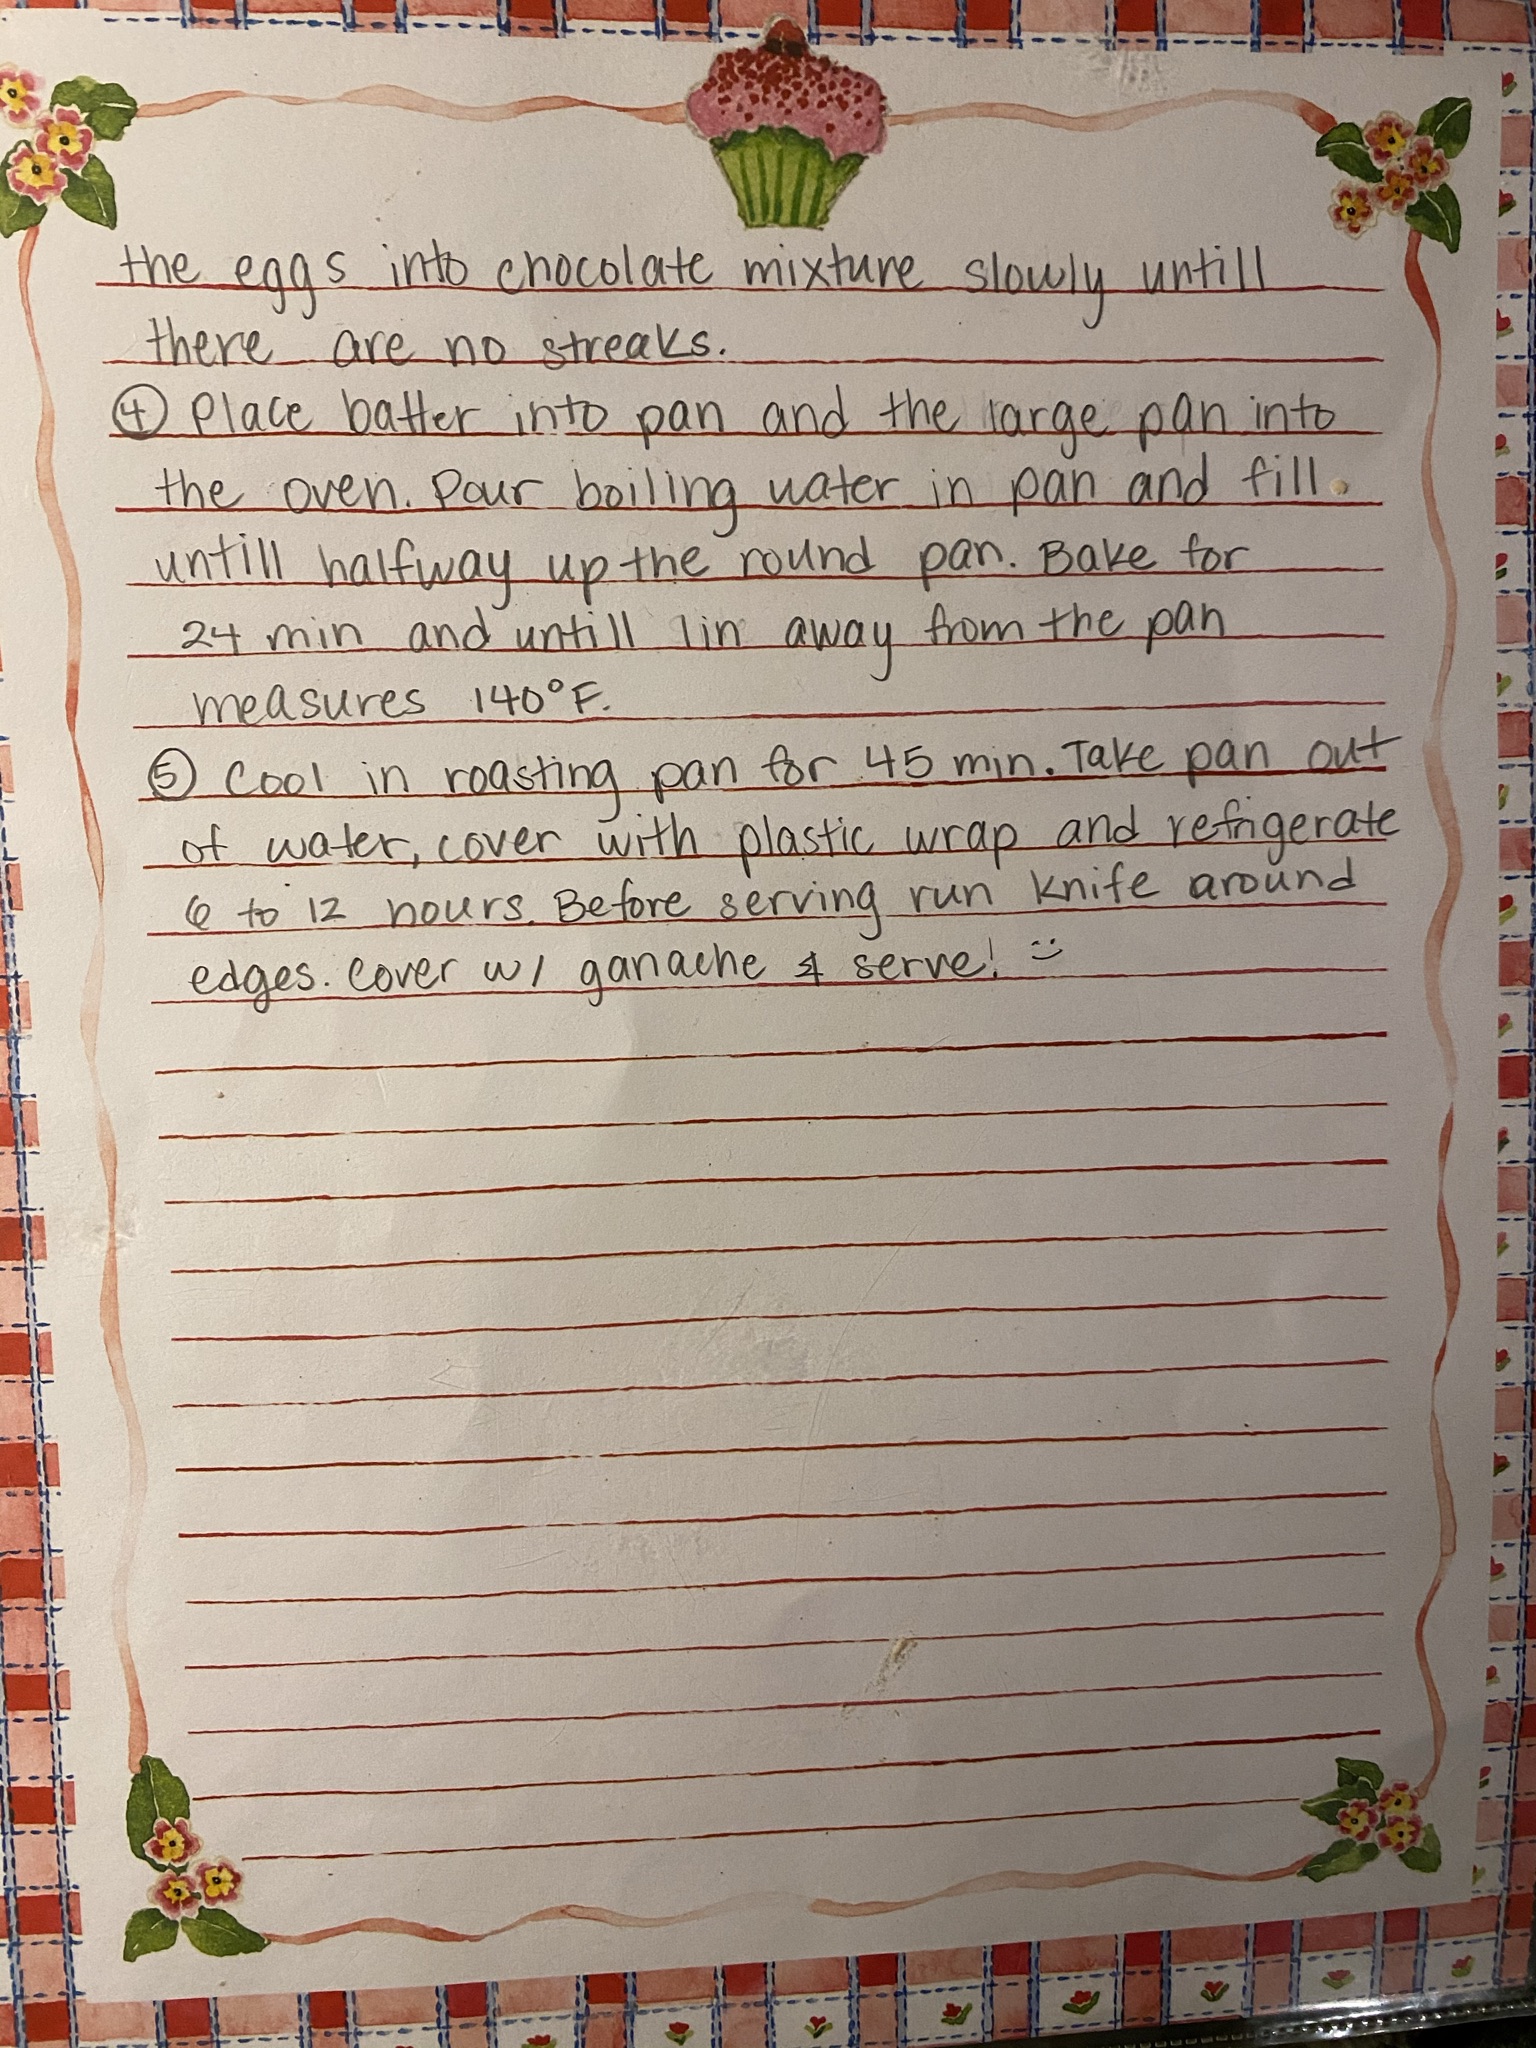 the eggs into chocolate mixture slowly untill
there are no streaks.
④ Place batter into pan and the large pan into
the oven. Pour boiling water in pan and fill
untill halfway up the round pan. Bake for
24 min and untill 1in away from the pan
measures 140°F.
⑤ Cool in roasting pan for 45 min. Take pan out
of water, cover with plastic wrap and refrigerate
6 to 12 hours. Before serving run knife around
edges. Cover w/ ganache & serve! :)